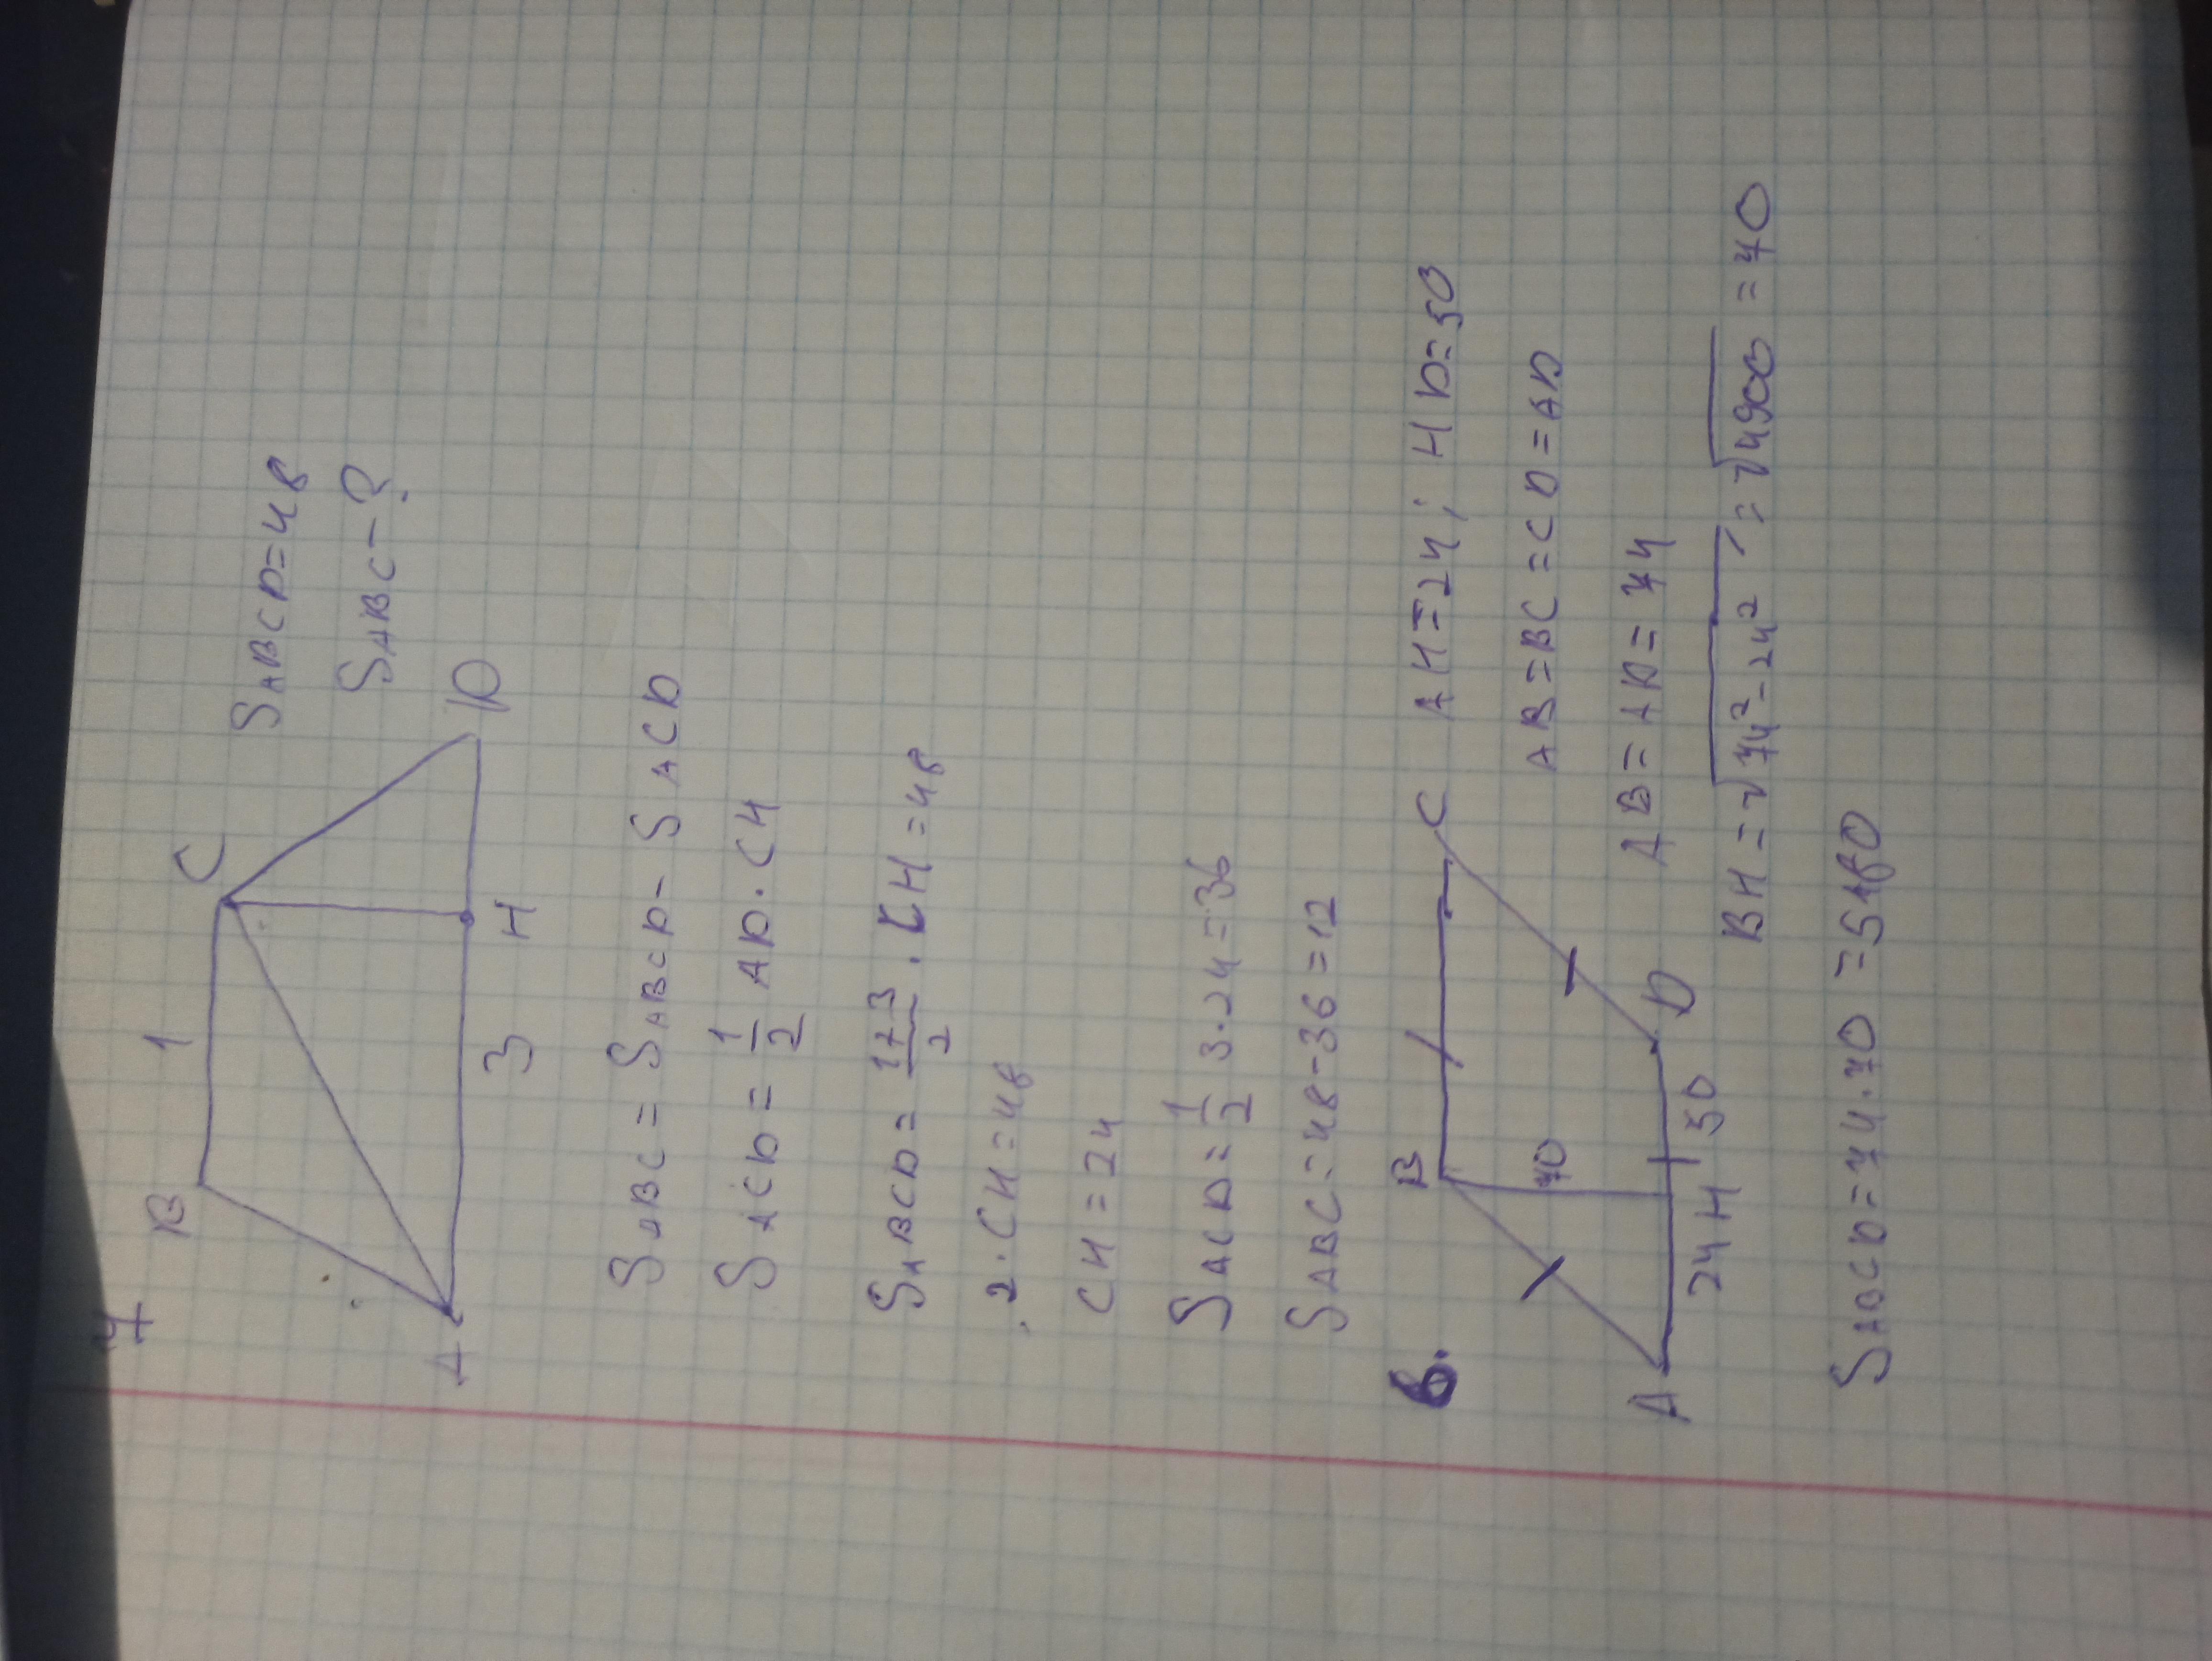 7
B 1 C
S ABCD = 48
S ABC - ?
A 3 H D
S ABC = S ABCD - S ACD
S ACD = 1/2 AD · CH
S ABCD = (1+3)/2 · CH = 48
2 · CH = 48
CH = 24
S ACD = 1/2 3 · 24 = 36
S ABC = 48 - 36 = 12
6.
B C
AH = 24; HD = 50
AB = BC = CD = AD
70
A 24 H 50 D
AB = AD = 74
BH = √(74² - 24²) = √4900 = 70
S ABCD = 74 · 70 = 5180